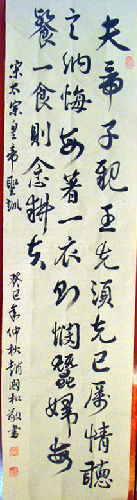 夫帝子親王先須克己厲情聽
之納誨每著一衣則憫蠶婦每
餐一食則念耕夫
宋太宗皇帝聖訓
癸巳年仲秋趙國松敬書